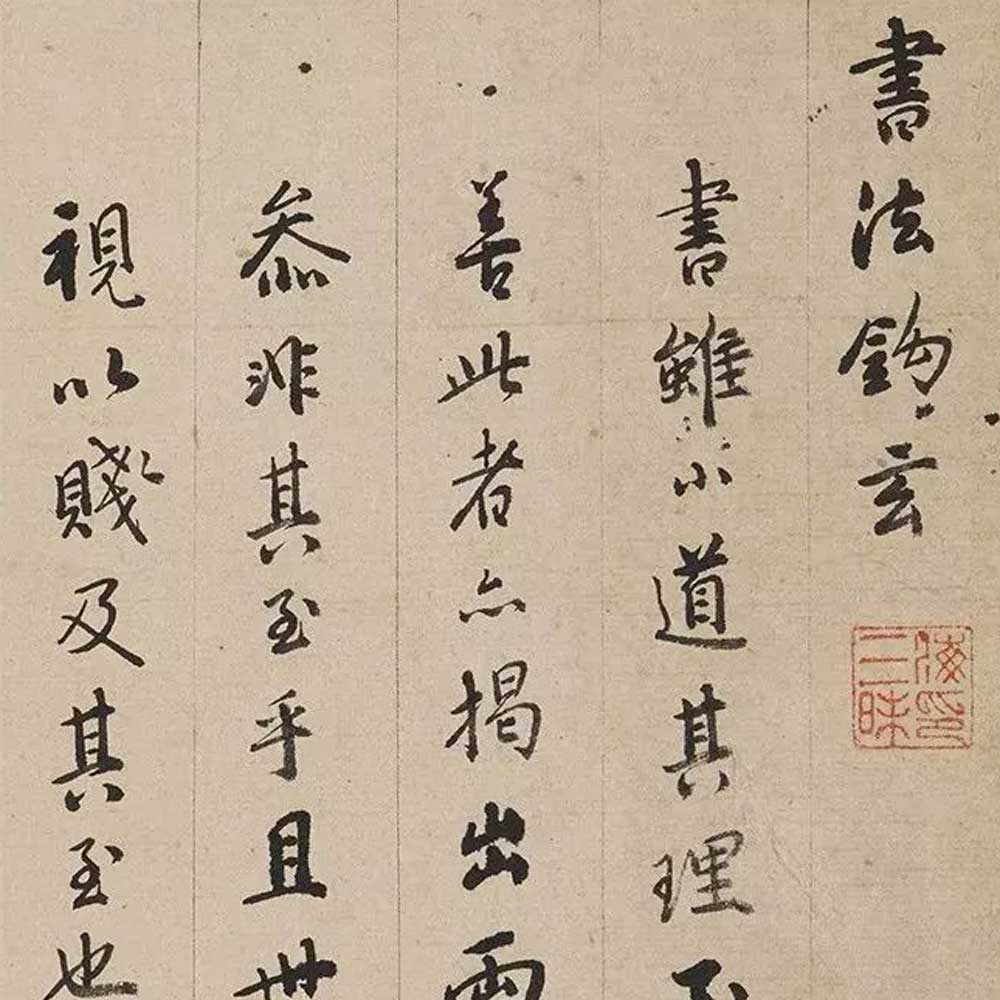 書法鈎玄
海印三昧
書雖小道其理
善此者亦揭出兩
叅非其至乎且世
視以賤及其至也